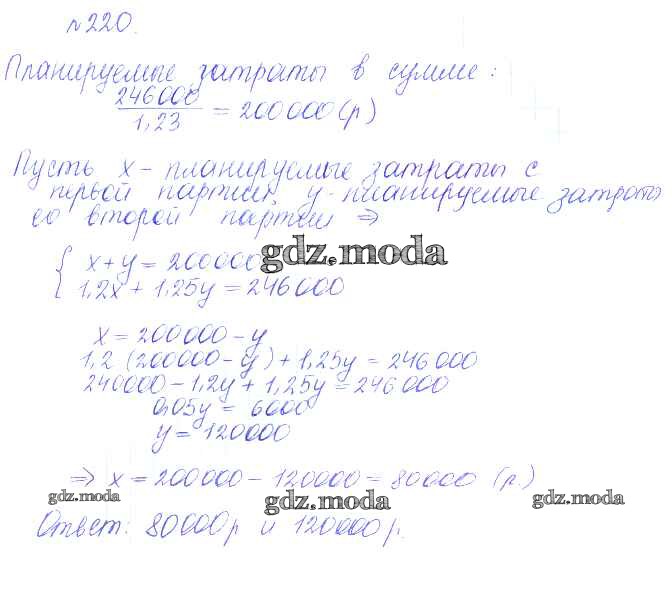 №220.
Планируемые затраты в сумме:
246000/1,23 = 200000(р)
Пусть x - планируемые затраты с
первой партии, y - планируемые затраты
со второй партии ⇒
{ x + y = 200000 gdz.moda
1,2x + 1,25y = 246000
x = 200000 - y
1,2 (200000 - y) + 1,25y = 246000
240000 - 1,2y + 1,25y = 246000
0,05y = 6000
y = 120000
⇒ x = 200000 - 120000 = 80000 (р.)
gdz.moda gdz.moda gdz.moda
Ответ: 80000р и 120000р.